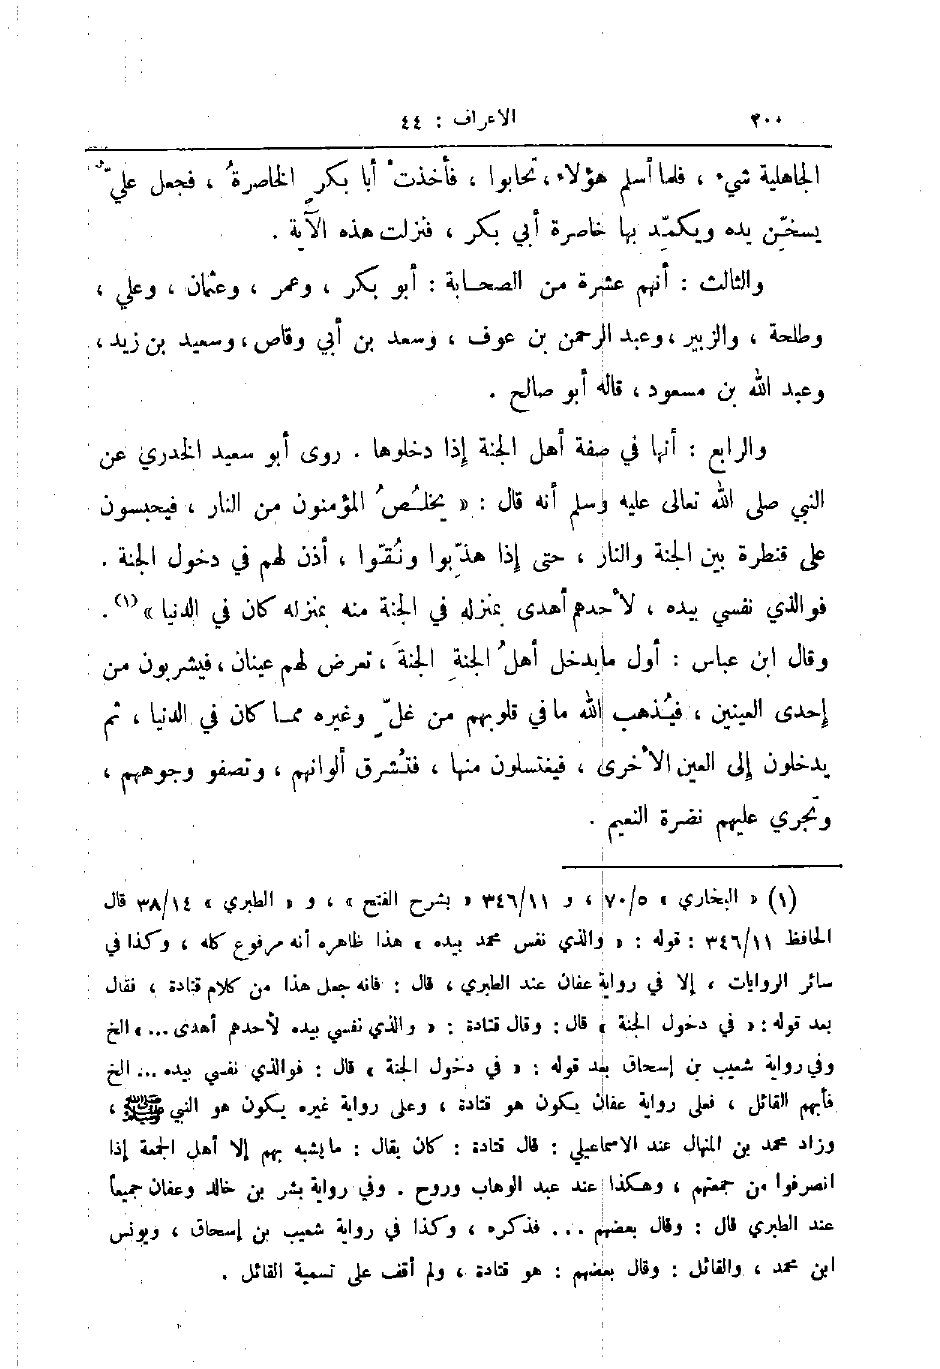 ٢٠٠ الاعراف : ٤٤
الجاهلية شيء ، فلما أسلم هؤلاء ، تحابوا ، فأخذتْ أبا بكرٍ الخاصرةُ ، فجعل عليّ
يسخِّن يده ويكمِّد بها خاصرة أبي بكر ، فنزلت هذه الآية .
والثالث : أنهم عشرة من الصحابة : أبو بكر ، وعمر ، وعثمان ، وعلي ،
وطلحة ، والزبير ، وعبد الرحمن بن عوف ، وسعد بن أبي وقاص ، وسعيد بن زيد ،
وعبد الله بن مسعود ، قاله أبو صالح .
والرابع : أنها في صفة أهل الجنة إذا دخلوها . روى أبو سعيد الخدري عن
النبي صلى الله تعالى عليه وسلم أنه قال : « يخلُصُ المؤمنون من النار ، فيحبسون
على قنطرة بين الجنة والنار ، حتى إذا هذِّبوا ونُقّوا ، أذن لهم في دخول الجنة .
فوالذي نفسي بيده ، لأحدهم أهدى بمنزله في الجنة منه بمنزله كان في الدنيا » (١) .
وقال ابن عباس : أول ما يدخل أهلُ الجنةِ الجنةَ ، تعرض لهم عينان ، فيشربون من
إحدى العينين ، فيُذهب الله ما في قلوبهم من غلّ وغيره مما كان في الدنيا ، ثم
يدخلون إلى العين الأخرى ، فيغتسلون منها ، فتُشرق ألوانهم ، وتصفو وجوههم ،
وتجري عليهم نضرة النعيم .
(١) « البخاري » ٧٠/٥ ، و ٣٤٦/١١ « بشرح الفتح » ، و « الطبري » ٣٨/١٤ قال
الحافظ ٣٤٦/١١ : قوله : « والذي نفس محمد بيده » هذا ظاهره أنه مرفوع كله ، وكذا في
سائر الروايات ، إلا في رواية عفان عند الطبري ، قال : فانه جعل هذا من كلام قتادة ، فقال
بعد قوله : « في دخول الجنة » قال : وقال قتادة : « والذي نفسي بيده لأحدهم أهدى ... » الخ
وفي رواية شعيب بن إسحاق بعد قوله : « في دخول الجنة » قال : فوالذي نفسي بيده ... الخ
فأبهم القائل ، فعلى رواية عفان يكون هو قتادة ، وعلى رواية غيره يكون هو النبي ﷺ ،
وزاد محمد بن المنهال عند الاسماعيلي : قال قتادة : كان يقال : ما يشبه بهم إلا أهل الجمعة إذا
انصرفوا من جمعتهم ، وهكذا عند عبد الوهاب وروح . وفي رواية بشر بن خالد وعفان جميعاً
عند الطبري قال : وقال بعضهم ... فذكره ، وكذا في رواية شعيب بن إسحاق ، ويونس
ابن محمد ، والقائل : وقال بعضهم : هو قتادة ، ولم أقف على تسمية القائل .